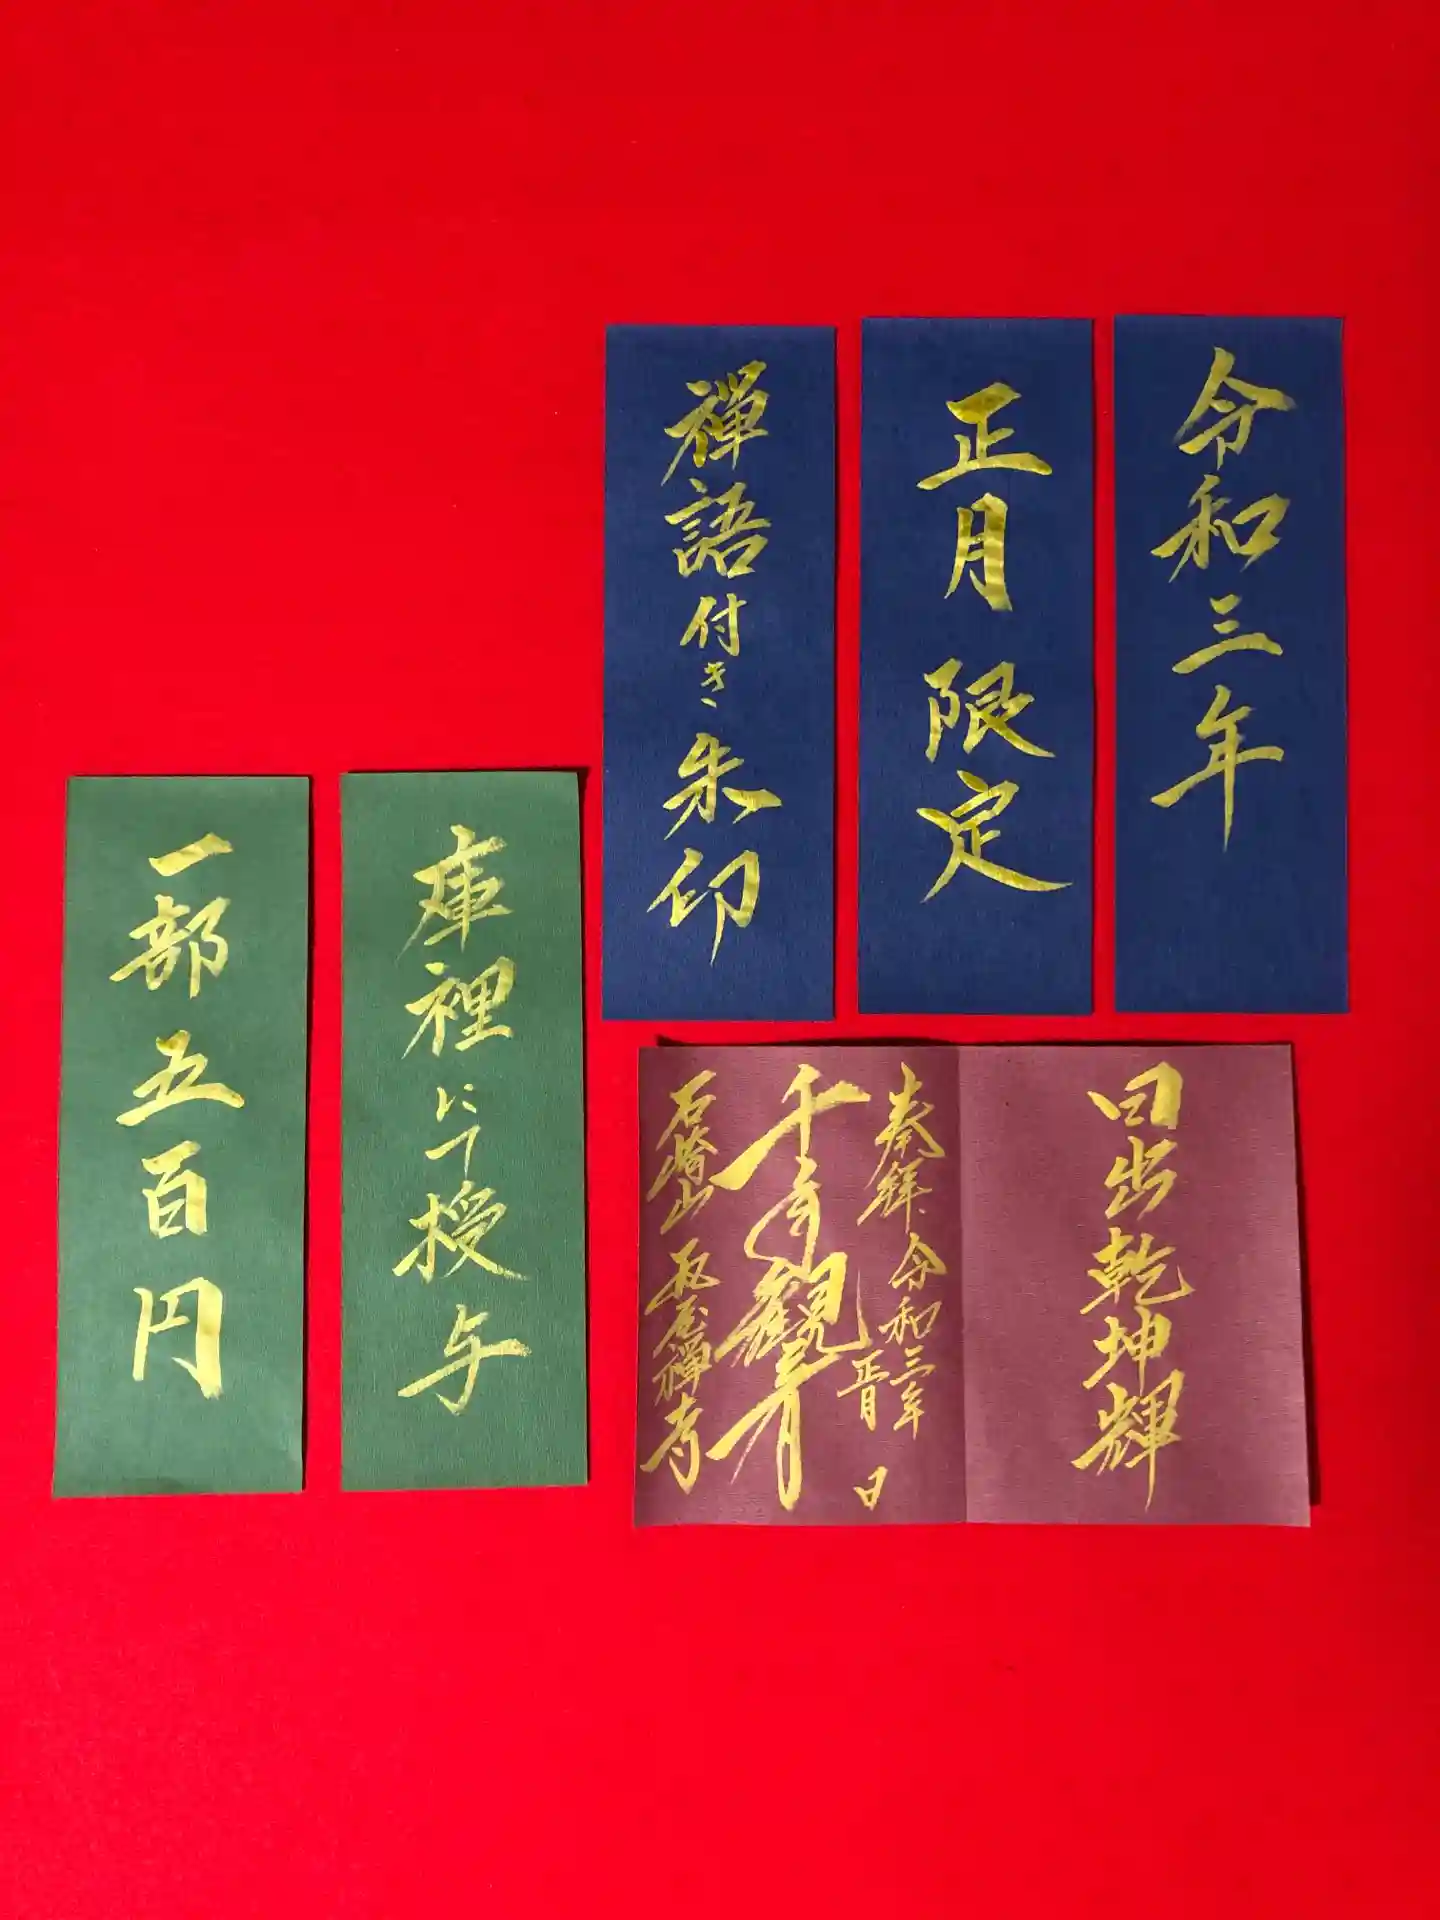 令和三年
正月限定
禅語付き朱印
日出乾坤輝
奉拝 令和三年
正月 日
千手観音
石崎山 瓦屋禅寺
庫裡にて授与
一部 五百円